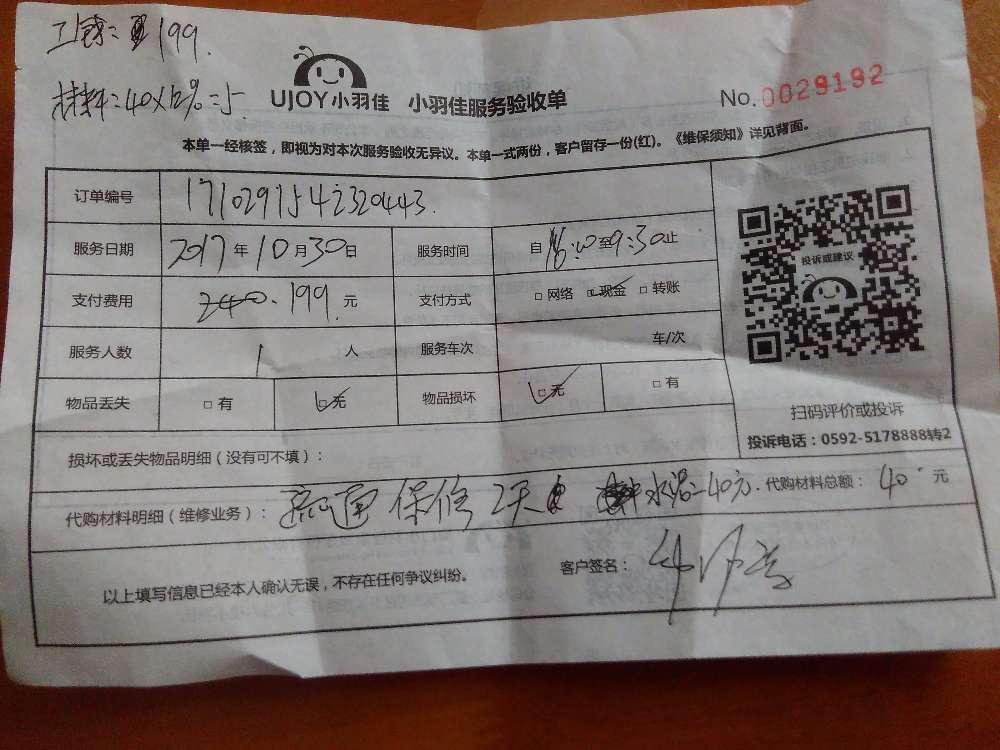 工钱：199.
材料：40×12%=5.
UJOY小羽佳 小羽佳服务验收单 No.0029192
本单一经核签，即视为对本次服务验收无异议。本单一式两份，客户留存一份(红)。《维保须知》详见背面。
订单编号 1710291542320443.
服务日期 2017年10月30日 服务时间 自 至9:30止
支付费用 199元 支付方式 □网络 □现金 □转账
服务人数 1人 服务车次 车/次
物品丢失 □有 □无 物品损坏 □无 □有
投诉或建议
扫码评价或投诉
投诉电话：0592-5178888转2
损坏或丢失物品明细（没有可不填）：
代购材料明细（维修业务）： 疏通 保修 2天 水泥=40元. 代购材料总额： 40 元
以上填写信息已经本人确认无误，不存在任何争议纠纷。 客户签名：